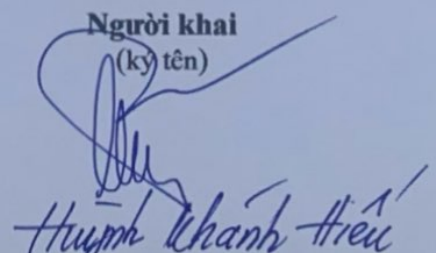 Người khai
(ký tên)
Huỳnh Khánh Hiếu